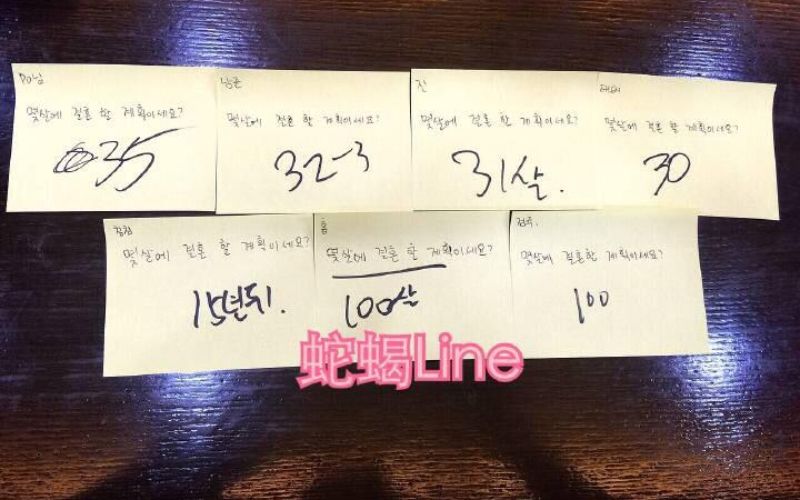 몇살에 결혼 할 계획이세요?
35
남준
몇살에 결혼 할 계획이세요?
32-3
진
몇살에 결혼 할 계획이세요?
31살.
몇살에 결혼 할 계획이세요?
30
몇살에 결혼 할 계획이세요?
15년뒤.
홉
몇살에 결혼 할 계획이세요?
100살
정국.
몇살에 결혼할 계획이세요?
100
蛇蝎Line